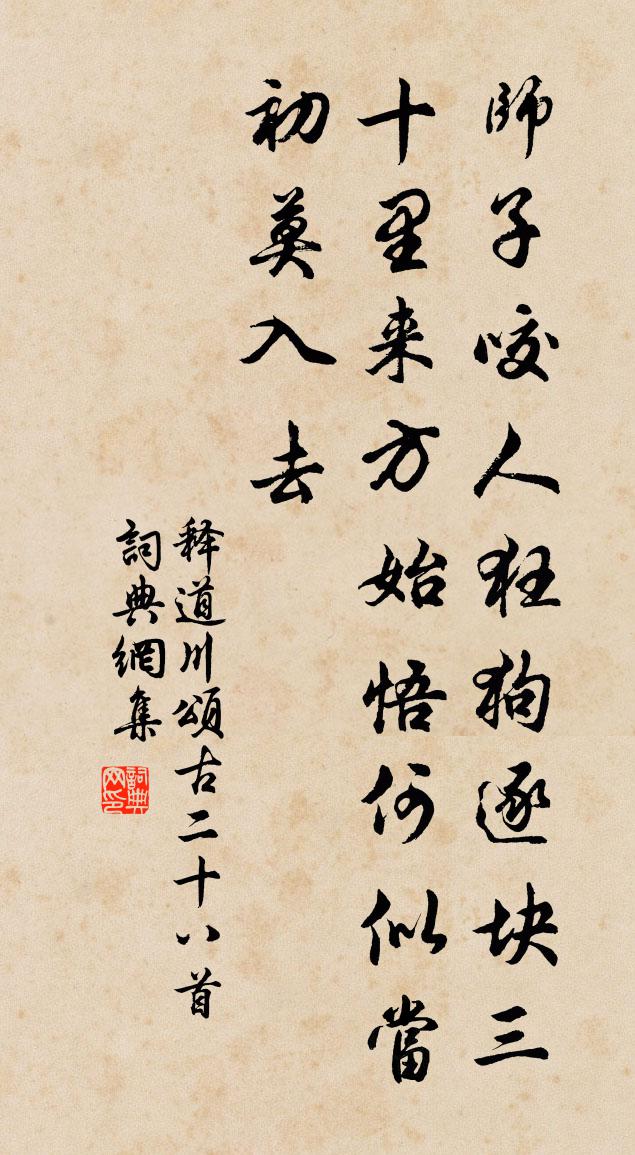 師子咬人狂狗逐块三
十里来方始悟何似當
初莫入去
释道川頌古二十八首
詞典網集
詞典网印